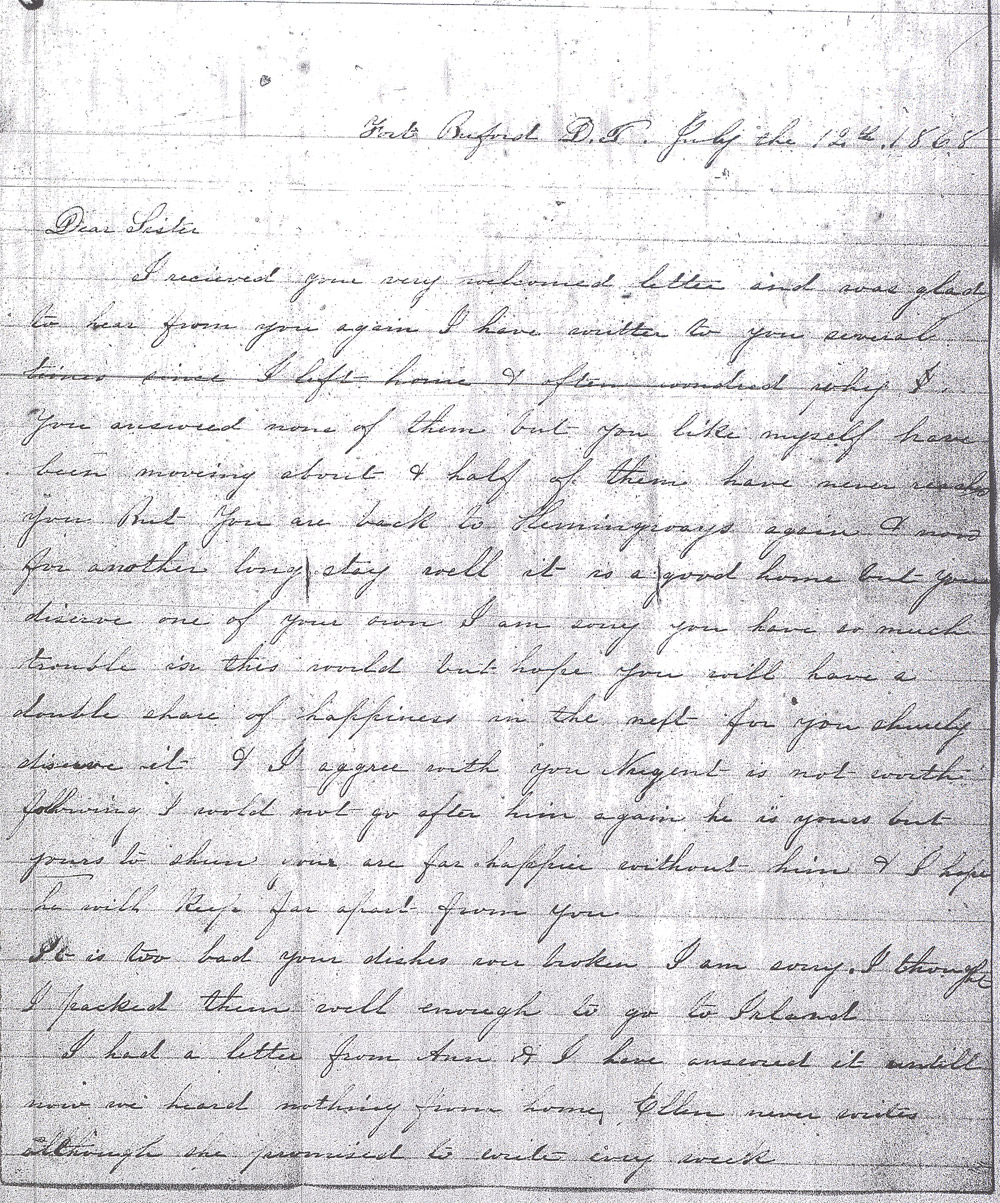 Fort Buford D.T. July the 12th. 1868
Dear Sister
I recieved your very welcomed letter and was glad
to hear from you again I have written to you several
times since I left home & often wondred why
You answered none of them but you like myself have
been moving about & half of them have never
you But You are back to Hemingways again & now
for another long stay well it is a good home but you
diserve one of your own I am sorry you have so much
trouble in this world but hope you will have a
double share of happiness in the next for you shurely
diserve it & I aggree with you Nugent is not worth
following I wold not go after him again he is yours but
yours to shun your are far happier without him & I hope
he will keep far apart from you
It is too bad your dishes wer broken I am sorry. I thought
I packed them well enough to go to Irland
I had a letter from Ann & I have answered it untill
now we heard nothing from home, Ellen never writes
although she promised to write every week